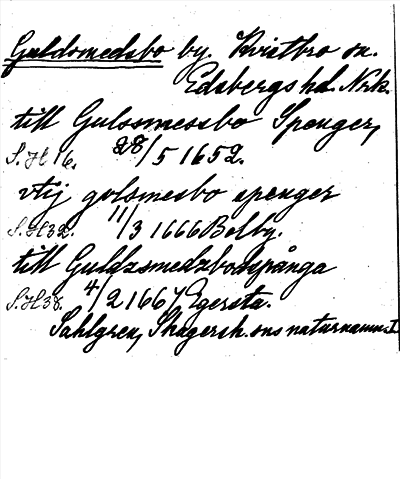 Guldsmedsbo by. Kvistbro sn.
Edsbergs hd. Nrk.
till Gulssmessbo Spenger,
S. H 16. 28/5 1652.
vtij golsmesbo spenger
S. H 32. 11/3 1666 Bolby.
till Guldzsmedzbospånga
S. H 38. 4/2 1667 Egersta.
Sahlgren, Skagersh. sns naturnamn I